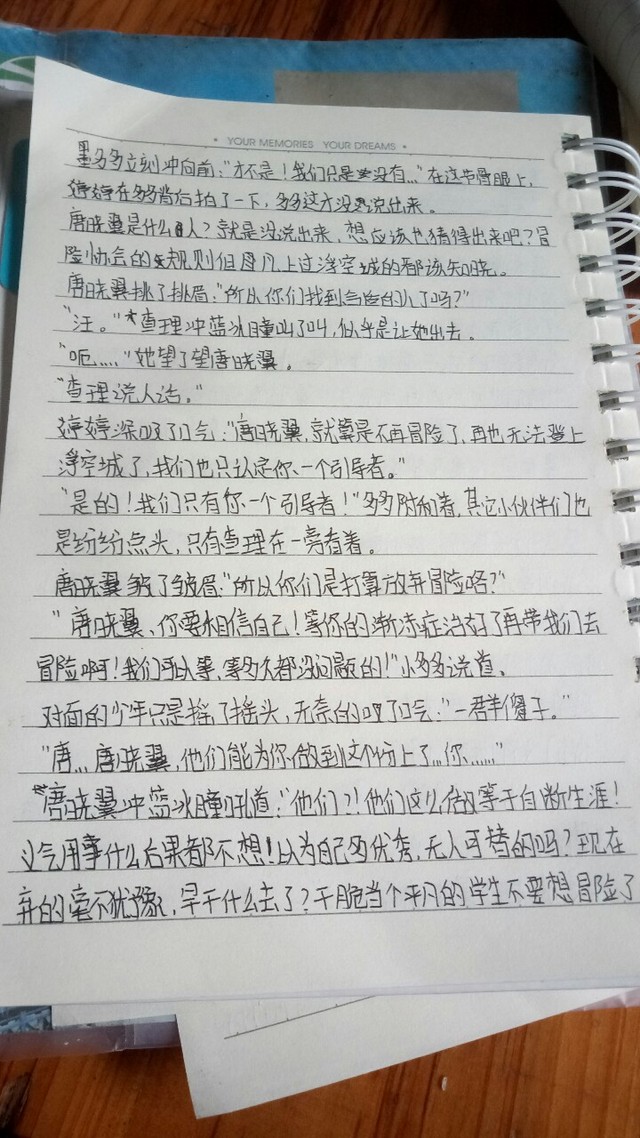 • YOUR MEMORIES YOUR DREAMS •
墨多多立刻冲向前：“才不是！我们只是没有…”在这节骨眼上，
婷婷在多多背后拍了一下，多多这才没说出来。
唐晓翼是什么人？就是没说出来，想应该也猜得出来吧？冒
险协会的规则但凡上过浮空城的都该知晓。
唐晓翼挑了挑眉：“所以你们找到合适的人了吗？”
“汪。”查理冲蓝冰瞳叫了叫，似乎是让她出去。
“呃……”她望了望唐晓翼。
“查理说人话。”
婷婷深吸了口气：“唐晓翼，就算是不再冒险了，再也无法登上
浮空城了，我们也只认定你一个引导者。”
“是的！我们只有你一个引导者！”多多附和着，其它小伙伴们也
是纷纷点头，只有查理在一旁看着。
唐晓翼皱了皱眉：“所以你们是打算放弃冒险咯？”
“唐晓翼、你要相信自己！等你的渐冻症治好了再带我们去
冒险啊！我们可以等，等多久都没问题的！”小多多说道、
对面的少年只是摇了摇头，无奈的叹了口气：“一群傻子。”
“唐…唐晓翼，他们能为你做到这个份上了…你……”
唐晓翼冲蓝冰瞳吼道：“他们？！他们这么做等于自断生涯！
义气用事什么后果都不想！以为自己多优秀，无人可替的吗？现在
弃的毫不犹豫，早干什么去了？干脆当个平凡的学生不要想冒险了